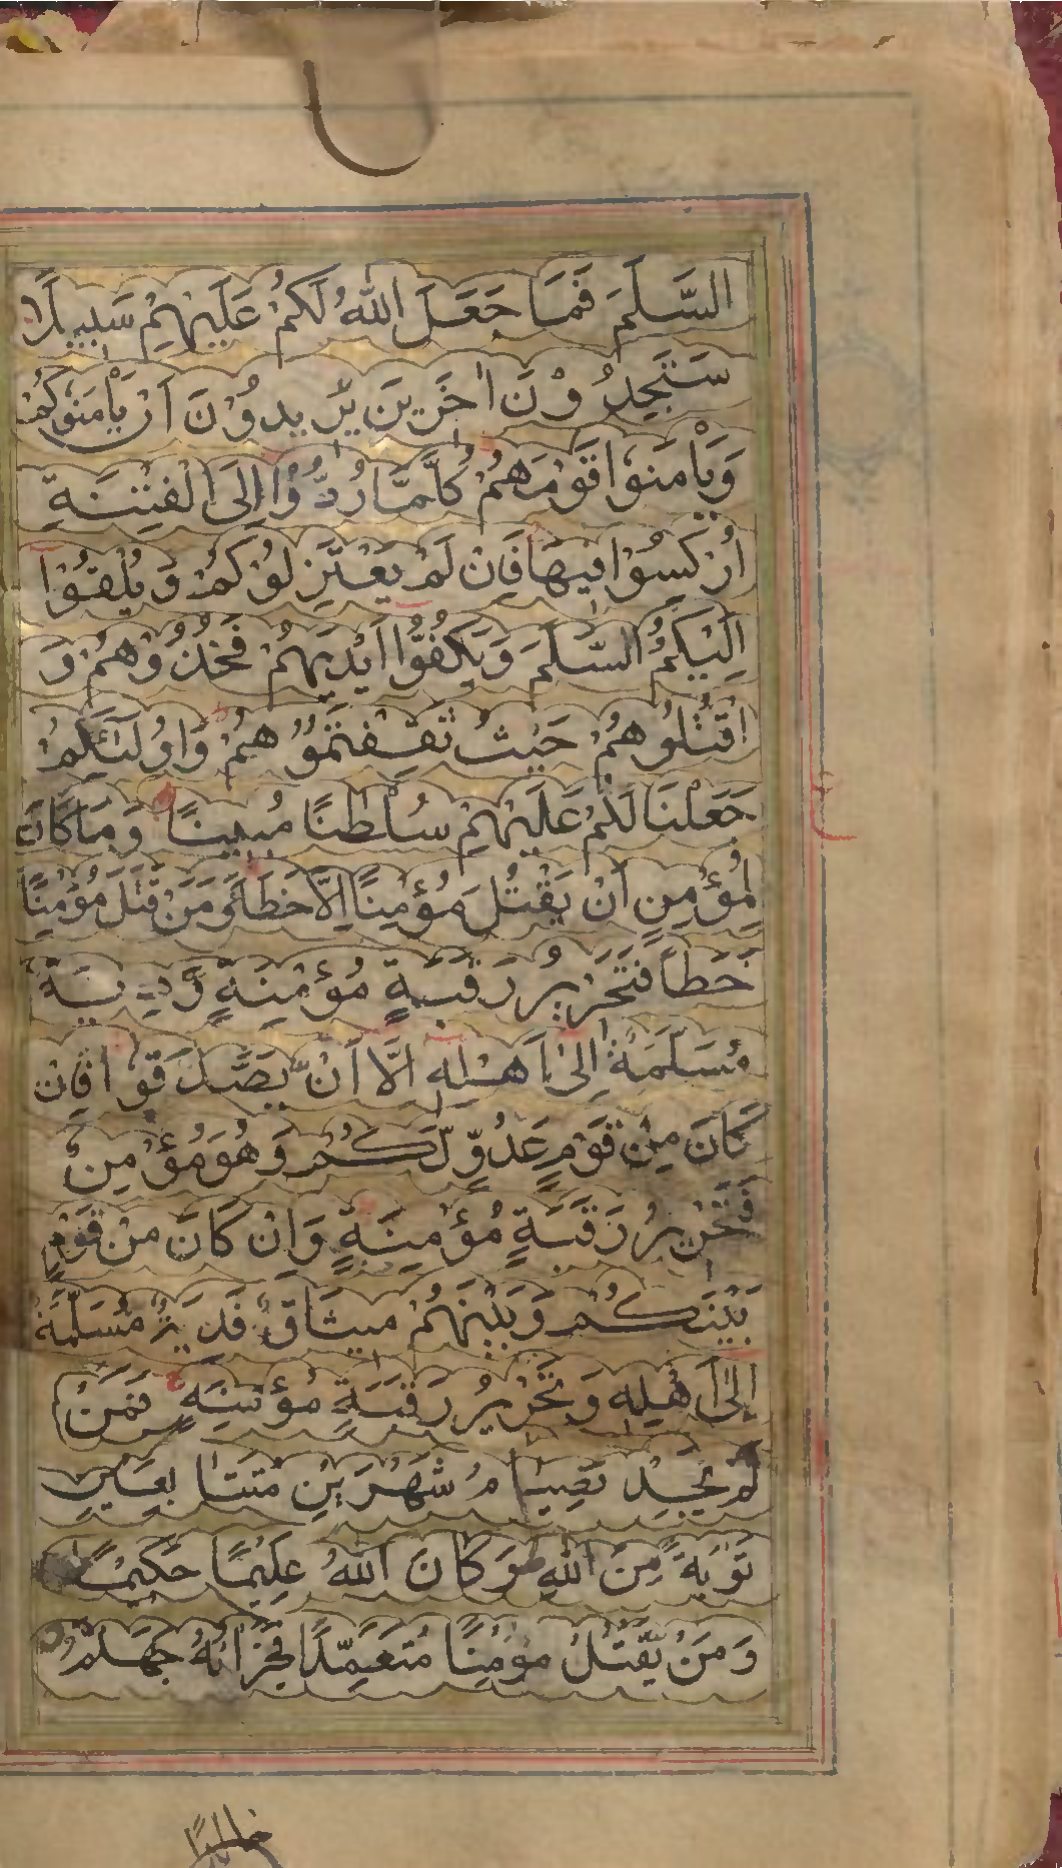 السَّلَمَ فَمَا جَعَلَ اللّٰهُ لَكُمْ عَلَيْهِمْ سَبِيلًا
سَتَجِدُوْنَ اٰخَرِينَ يُرِيدُوْنَ اَنْ يَاْمَنُوكُمْ
وَيَاْمَنُوْا قَوْمَهُمْ كُلَّمَا رُدُّوْا اِلَى الْفِتْنَةِ
اُرْكِسُوْا فِيْهَا فَاِنْ لَمْ يَعْتَزِلُوْكُمْ وَيُلْقُوْا
اِلَيْكُمُ السَّلَمَ وَيَكُفُّوْا اَيْدِيَهُمْ فَخُذُوْهُمْ وَ
اقْتُلُوهُمْ حَيْثُ ثَقِفْتُمُوْهُمْ وَاُولٰئِكُمْ
جَعَلْنَا لَكُمْ عَلَيْهِمْ سُلْطٰنًا مُبِينًا وَمَا كَانَ
لِمُؤْمِنٍ اَنْ يَقْتُلَ مُؤْمِنًا اِلَّا خَطَأً وَمَنْ قَتَلَ مُؤْمِنًا
خَطَأً فَتَحْرِيرُ رَقَبَةٍ مُؤْمِنَةٍ وَّدِيَةٌ
مُسَلَّمَةٌ اِلٰى اَهْلِهِ اِلَّا اَنْ يَصَّدَّقُوْا فَاِنْ
كَانَ مِنْ قَوْمٍ عَدُوٍّ لَّكُمْ وَهُوَ مُؤْمِنٌ
فَتَحْرِيرُ رَقَبَةٍ مُؤْمِنَةٍ وَاِنْ كَانَ مِنْ قَوْمٍ
بَيْنَكُمْ وَبَيْنَهُمْ مِيثَاقٌ فَدِيَةٌ مُسَلَّمَةٌ
اِلٰى اَهْلِهِ وَتَحْرِيرُ رَقَبَةٍ مُؤْمِنَةٍ فَمَنْ
لَمْ يَجِدْ فَصِيَامُ شَهْرَيْنِ مُتَتَابِعَيْنِ
تَوْبَةً مِنَ اللّٰهِ ط وَكَانَ اللّٰهُ عَلِيْمًا حَكِيْمًا
وَمَنْ يَّقْتُلْ مُؤْمِنًا مُتَعَمِّدًا فَجَزَاؤُهُ جَهَنَّمُ
خالدًا